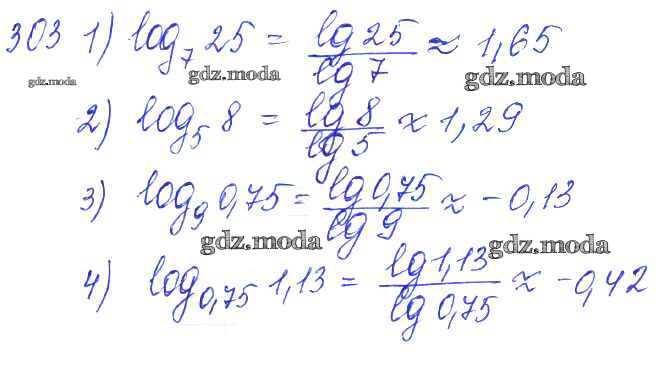 303 1) log₇ 25 = lg 25 / lg 7 ≈ 1,65
gdz.moda
gdz.moda
gdz.moda
2) log₅ 8 = lg 8 / lg 5 ≈ 1,29
3) log₉ 0,75 = lg 0,75 / lg 9 ≈ -0,13
gdz.moda
gdz.moda
4) log₀,₇₅ 1,13 = lg 1,13 / lg 0,75 ≈ -0,42